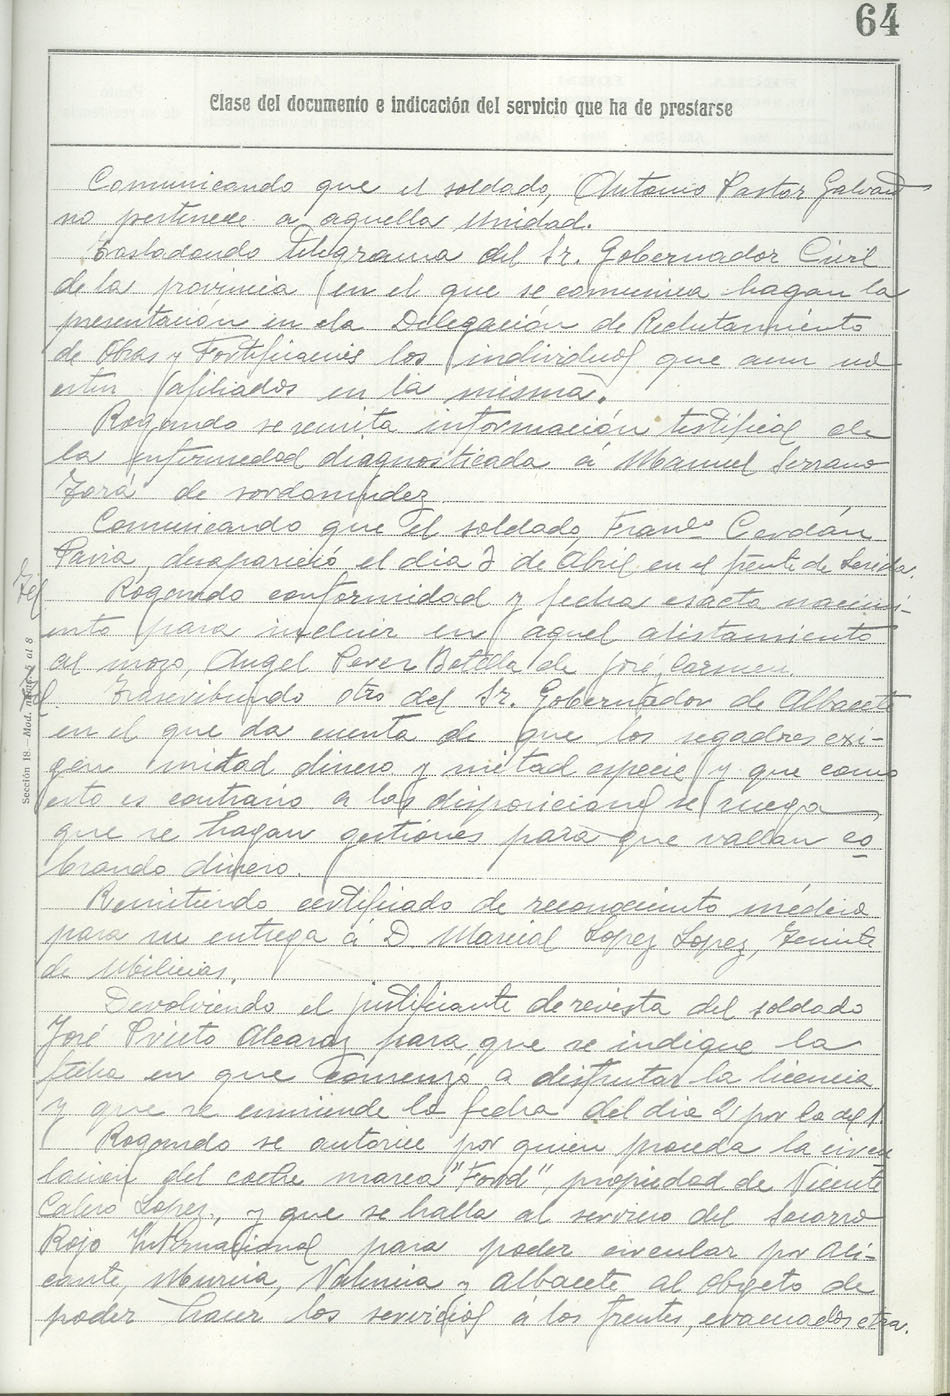 64
Clase del documento e indicación del servicio que ha de prestarse
Comunicando que el soldado, Antonio Pastor Galvañ
no pertenece a aquella Unidad.
Trasladando telegrama del Sr. Gobernador Civil
de la provincia en el que se comunica hagan la
presentación en ela Delegación de Reclutamiento
de Obras y Fortificaciones los individuos que aun no
estén afiliados en la misma.
Rogando se remita información testifical de
la enfermedad diagnosticada á Manuel Serrano
de sordomudez
Comunicando que el soldado, Franco Cerdán
Pavia, desapareció el dia 3 de Abril en el frente de Lerida.
Rogando conformidad y fecha esacta nacimi-
ento para incluir en aquel alistamiento
al mozo, Angel Perez Botella de José, Carmen.
Transcribiendo otro del Sr. Gobernador de Albacete
en el que da cuenta de que los segadores exi-
gen mitad dinero y mitad especie y que como
esto es contrario a las disposiciones se ruega
que se hagan gestiones para que vallan co-
brando dinero.
Remitiendo certificado de reconocimiento médico
para su entrega á D. Marcial López Lopez, Teniente
de Milicias.
Devolviendo el justificante de revista del soldado
José Prieto Alcaraz para que se indique la
fecha en que comenzó a disfrutar la licencia
y que se enmiende la fecha del dia 21 por la del 1.
Rogando se autorice por quien proceda la circu
lacion del coche marca "Ford", propiedad de Vicente
Calero Lopez, y que se halla al servicio del Socorro
Rojo Internacional para poder circular por Ali-
cante, Murcia, Valencia y Albacete al objeto de
poder hacer los servicios á los frentes, evacuados etca.
Sección 18.- Mod. núm. al 8